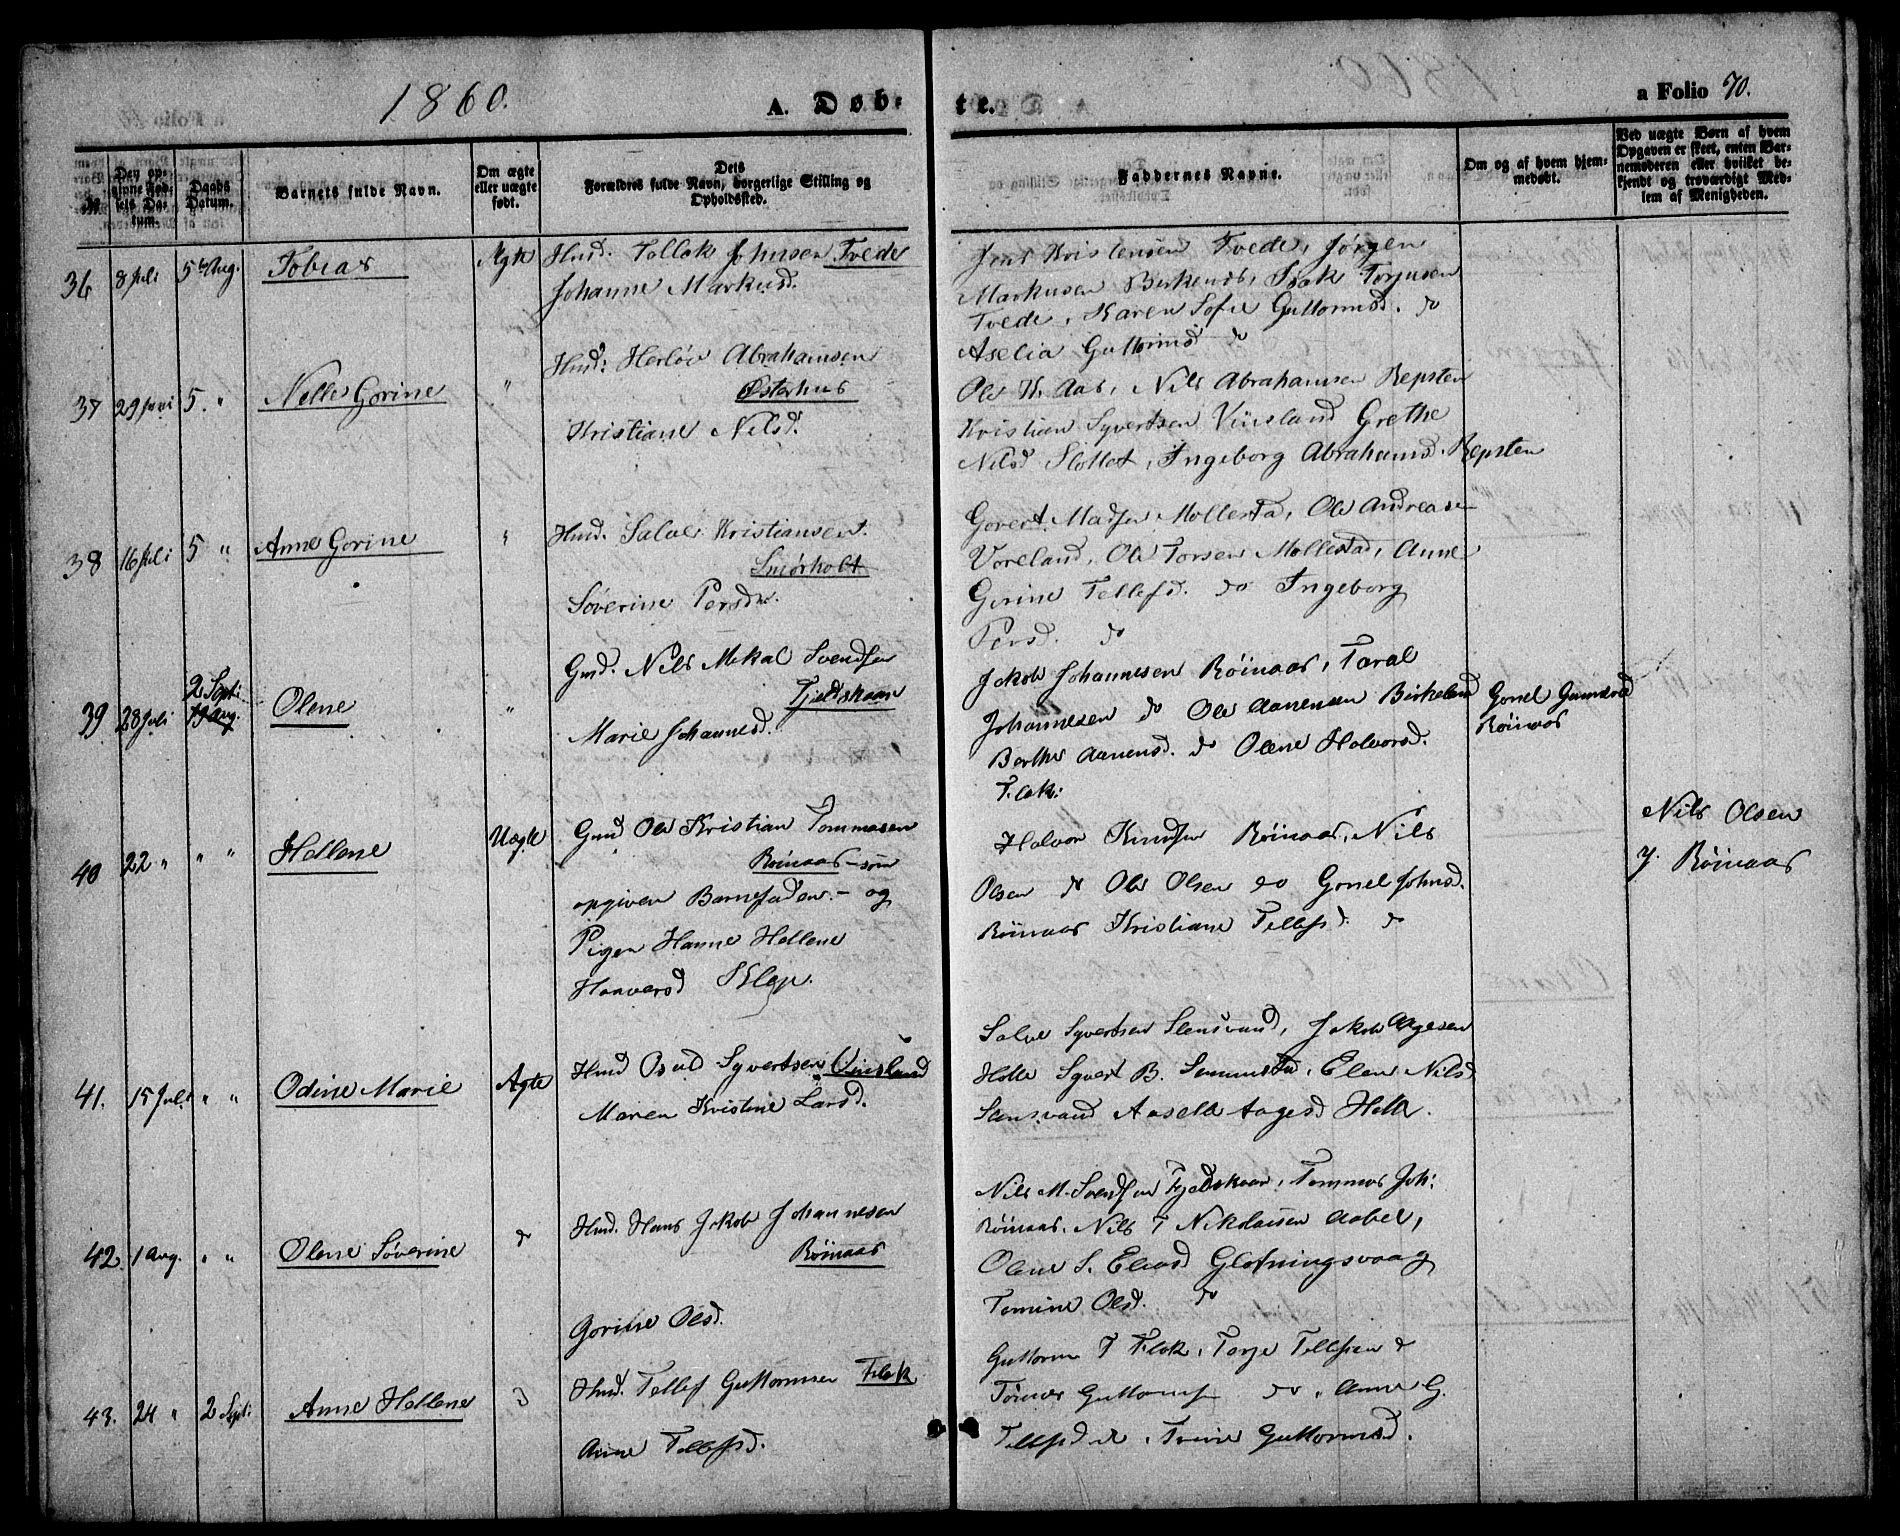 1860.
A. Døb-
te.
a Folio 70.
Den op-
givne Fød-
sels Da-
tum.
Daabs
Datum.
Barnets fulde Navn.
Om ægte
eller uægte
født.
Dets
Forældres fulde Navn, borgerlige Stilling og
Opholdssted.
Faddernes Navne.
Om og af hvem hjem-
medøbt.
Ved uægte Børn af hvem
Opgaven er skeet, enten Bar-
nemoderen eller hvilket be-
kjendt og troværdigt Med-
lem af Menigheden.
36 8 Juli 5te Aug. Tobias Ægte Husd. Tollak Johnsen Tvede
Johanne Markusd.
Jens Kristensen Tvede, Jørgen
Markusen Isak Torjusen
Tvede, Karen Sofie Guttormsd. do
Aselia Guttormsd do
37 29 Juni 5. " Nelle Gorine " Husd: Herløv Abrahamsen
Østerhus
Kristiane Nilsd.
Ole K. Aas, Nils Abrahamsen Repsten
Kristian Syvertsen Grethe
Nilsd Slottet, Ingeborg Abrahamsd. Repsten
38 16 Juli 5 " Anne Gorine " Husd. Salve Kristiansen
Smørholt
Søverine Persd.
Govert Madsen Mollestad, Ole Andreasen
Voreland, Ole Torsen Mollestad, Anne
Gorine Tellefsd. do Ingeborg
Persd. do
39 28 Juli 2 Sept: 19 Aug. Olene " Gmd. Nils Mikal Svendsen
Fjeldskaar
Marie Johannesd.
Jakob Johannesen Røinaas, Taral
Johannesen do Ole Aanensen Birkeland
Berthe Aanensd. do Olene Halvorsd.
Flak:
Gonel Gundersd
Røinaas
40 22 " " " Hellene Uægte Gmd Ole Kristian Tommasen
Røinaas - som
opgiven Barnefader. - og
Pigen Hanne Hellene
Haaversd Klep.
Halvor Knudsen Røinaas, Nils
Olsen do Ole Olsen do Gonel Johnsd.
Røinaas Kristiane Tellefsd. do
Nils Olsen
Røinaas
41. 15 Juli " " Odine Marie Ægte Husd Osuld Syvertsen
Maren Kristine Larsd.
Salve Syvertsen Stensvand, Jakob Aagesen
Holte Syvert B. Elen Nilsd
Stensvand Aaselle Aagesd Holte.
42. 1 Aug. " " Olene Søverine do Husd. Hans Jakob Johannesen
Røinaas
Gorine Olsd.
Nils M. Svendsen Fjeldskaar, Tommas Joh:
Røinaas, Nils T Nikolaisen Aabel,
Olene S. Eliasd Glotningsvaag
Tomine Olsd. do
43. 24 " 2 Sept: Anne Hellene do Husd. Tellef Guttormsen Flak
Anne Tellefsd.
Guttorm T Flak, Torje Tellefsen do
Tønnes Guttormsen do, Anne G.
Tellefsd do, Trine Guttormsd.